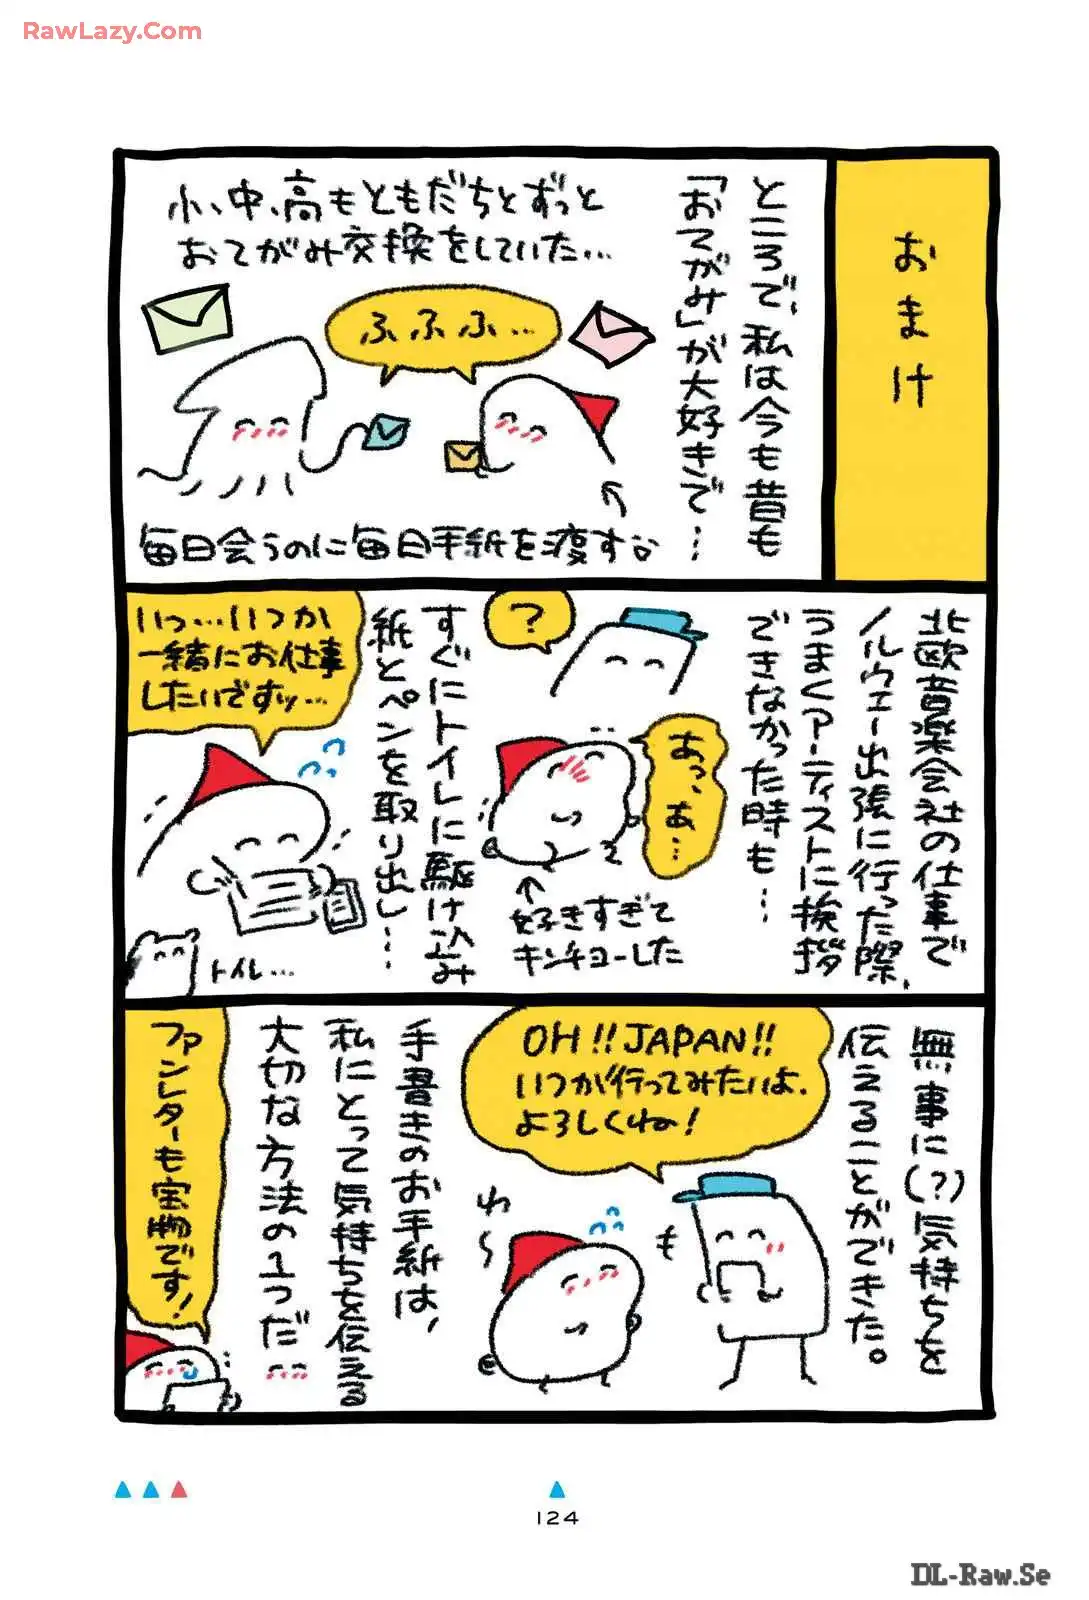 RawLazy.Com
おまけ
ところで、私は今も昔も
「おてがみ」が大好きで…
小、中、高もともだちとずっと
おてがみ交換をしていた…
ふふふ…
毎日会うのに毎日手紙を渡す
北欧音楽会社の仕事で
ノルウェー出張に行った際、
うまくアーティストに挨拶
できなかった時も…
?
あっ、あ…
好きすぎて
キンチョーした
すぐにトイレに駆け込み
紙とペンを取り出し…
いっ…いつか
一緒にお仕事
したいですッ…
トイレ…
無事に(?)気持ちを
伝えることができた。
OH!!JAPAN!!
いつか行ってみたいよ.
よろしくね!
も
わ〜
手書きのお手紙は、
私にとって気持ちを伝える
大切な方法の1つだ
ファンレターも宝物です!
124
DL-Raw.Se